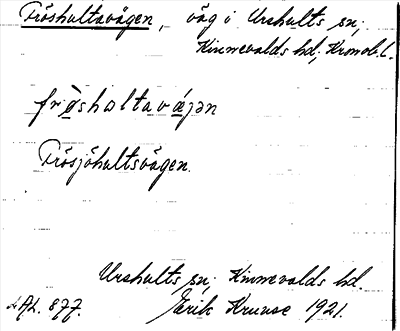 Fröshultavägen, väg i Urshults sn;
Kinnevalds hd, Kronob. l.
frøshɷltavɷjən
Frösjöhultsvägen.
Urshults sn; Kinnevalds hd.
Af. 877. Erik Kruuse 1921.